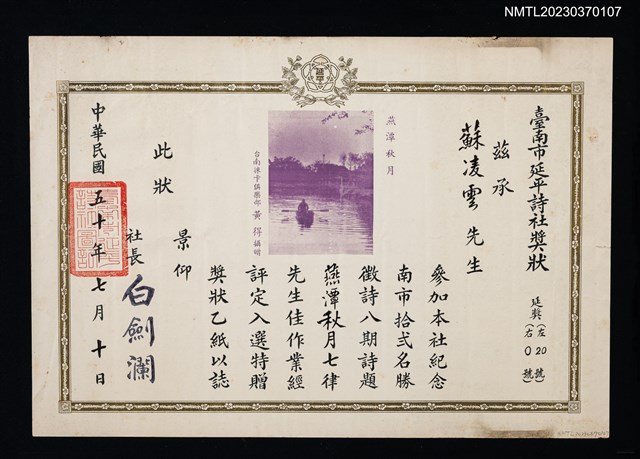 NMTL20230370107
延平
臺南市延平詩社獎狀
延獎(左20號)
(右0號)
茲承
蘇凌雲先生
參加本社紀念
南市拾弍名勝
徵詩八期詩題
燕潭秋月七律
先生佳作業經
評定入選特贈
獎狀乙紙以誌
景仰
此狀
燕潭秋月
黃得攝贈
社長白劍瀾
中華民國五十年七月十日